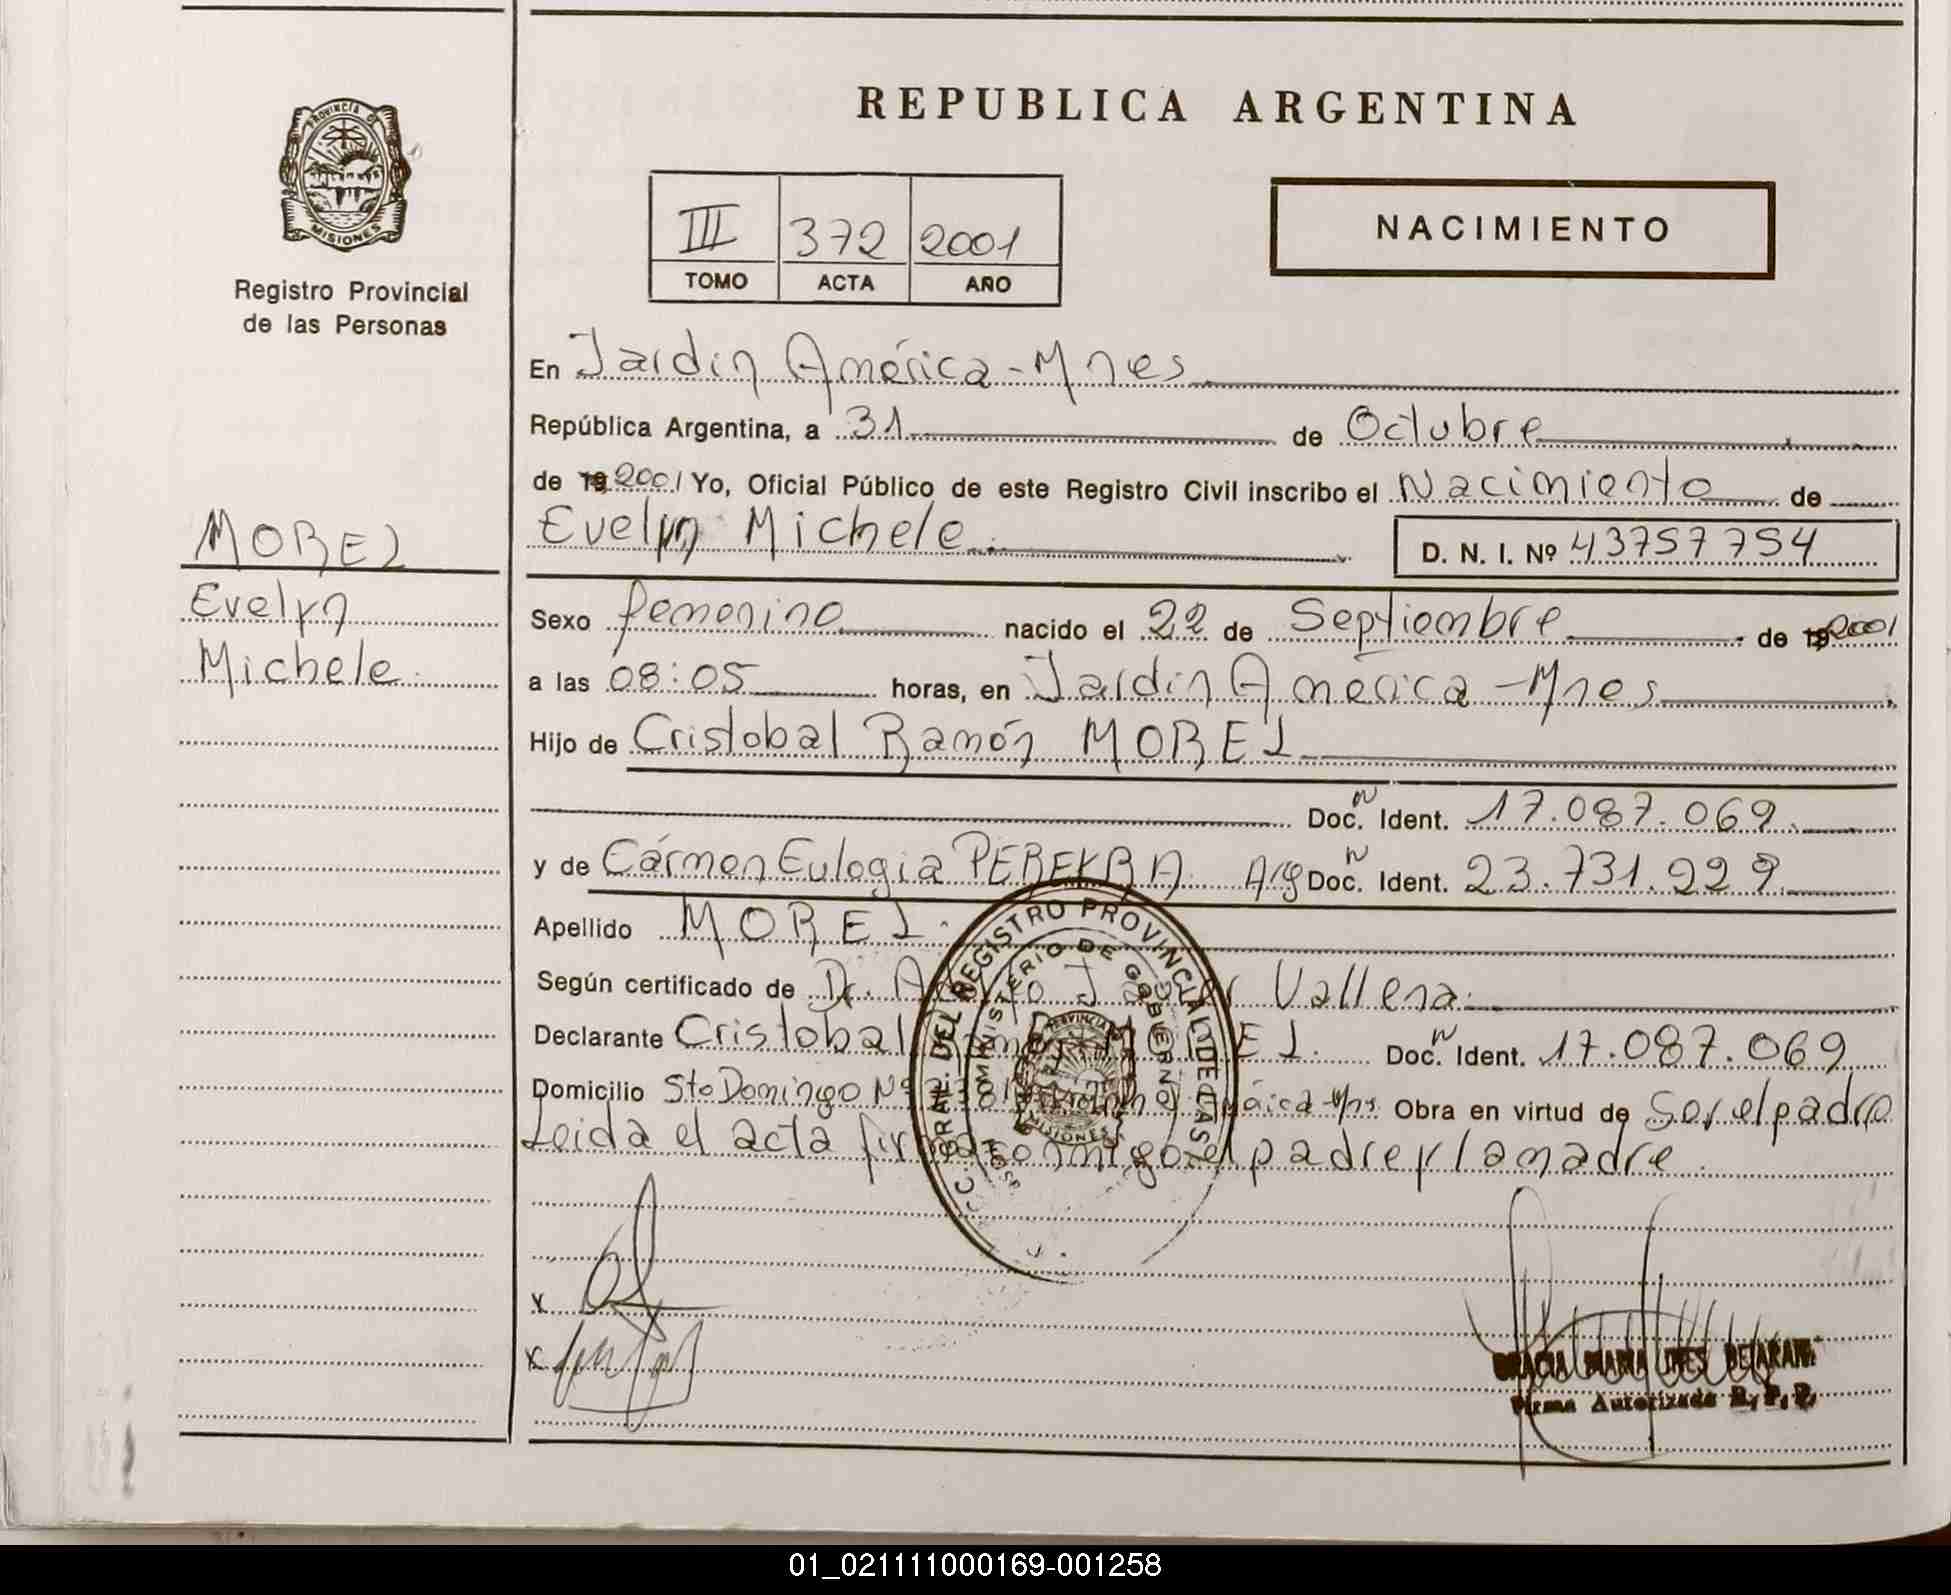 REPUBLICA ARGENTINA
PROVINCIA DE
MISIONES
Registro Provincial
de las Personas
III 372 2001
TOMO ACTA AÑO
NACIMIENTO
En Jardín América - Mnes
República Argentina, a 31 de Octubre
de 19 2001 Yo, Oficial Público de este Registro Civil inscribo el Nacimiento de
Evelyn Michele D. N. I. Nº 43757754
MOREL
Evelyn
Michele
Sexo femenino nacido el 22 de Septiembre de 19 2001
a las 08:05 horas, en Jardín América - Mnes
Hijo de Cristobal Ramón MOREL
Doc. Ident. 17.087.069
y de Cármen Eulogia PEREYRA Arg Doc. Ident. 23.731.229
Apellido MOREL
Según certificado de Dr. Vallena
Declarante Cristobal MOREL Doc. Ident. 17.087.069
Domicilio Sto Domingo Nº Obra en virtud de Ser el padre
Leida el acta firma conmigo el padre y la madre
REGISTRO PROVINCIAL DE LAS
MINISTERIO DE GOBIERNO
PROVINCIA
MISIONES
x
x
MARIA INES BEJARAN
Firma Autorizada R. P. P.
01_021111000169-001258